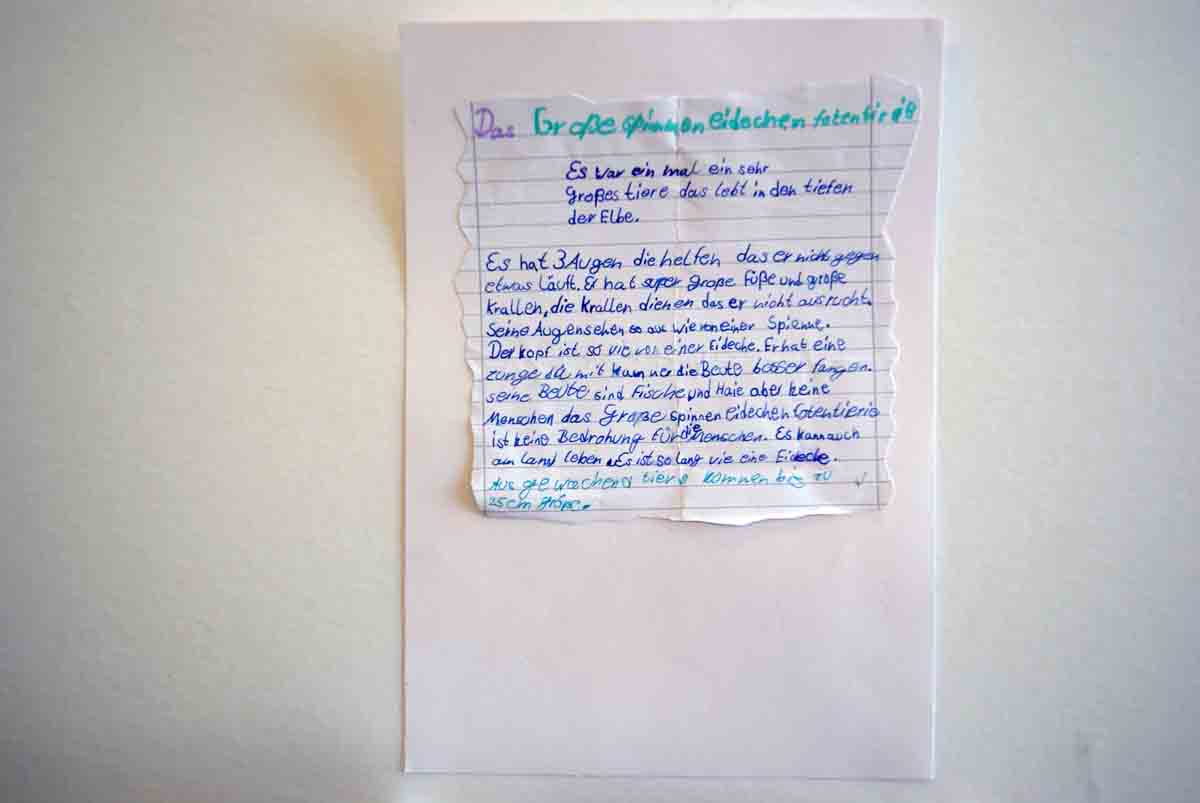 Das Große spinnen eidechen fotentier
Es var ein mal ein sehr
Großes tiere das lebt in den tiefen
der Elbe.
Es hat 3 Augen die helfen das er nicht gegen
etwas läuft. Er hat super große Füße und große
Krallen, die Krallen dienen das er nicht ausrucht.
Seine Augen sehen so aus wie von einer Spienne.
Der kopf ist so vie von einer Eideche. Er hat eine
zunge da mit kann er die Beute besser fangen.
seine Beute sind Fische und Haie aber keine
Menschen das Große spinnen eidechen fotentierie
ist keine Bedrohung für die Menschen. Es kann auch
am land leben. Es ist so lang vie eine Eideche.
Aus gewachend tiere kommen bis zu
25cm größe.